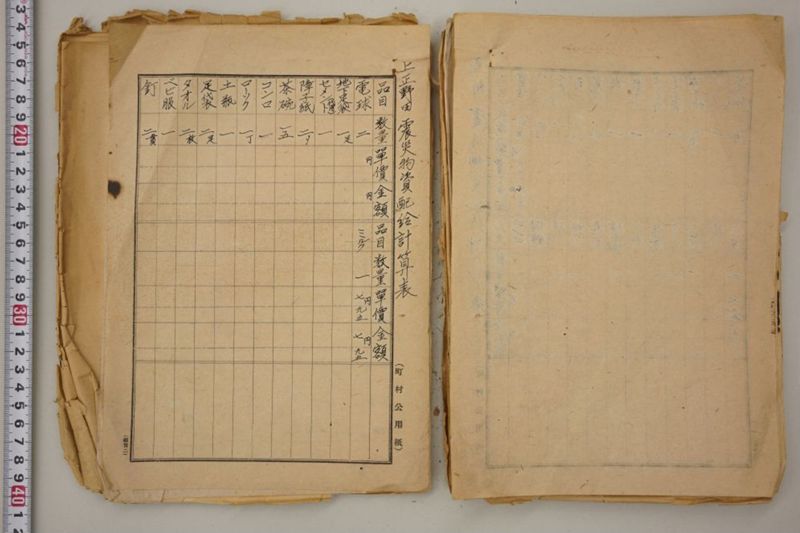 上正野田 震災物資配給計算表
品目 数量 單價 金額 品目 数量 單價 金額
電球 二 円 円 一 円 七九五 円 七九五
地下足袋 一足
障子紙 二
茶碗 五
コンロ 一
ローソク 一丁
土瓶 一
足袋 二足
タオル 二枚
釘 二貫
(町村公用紙)